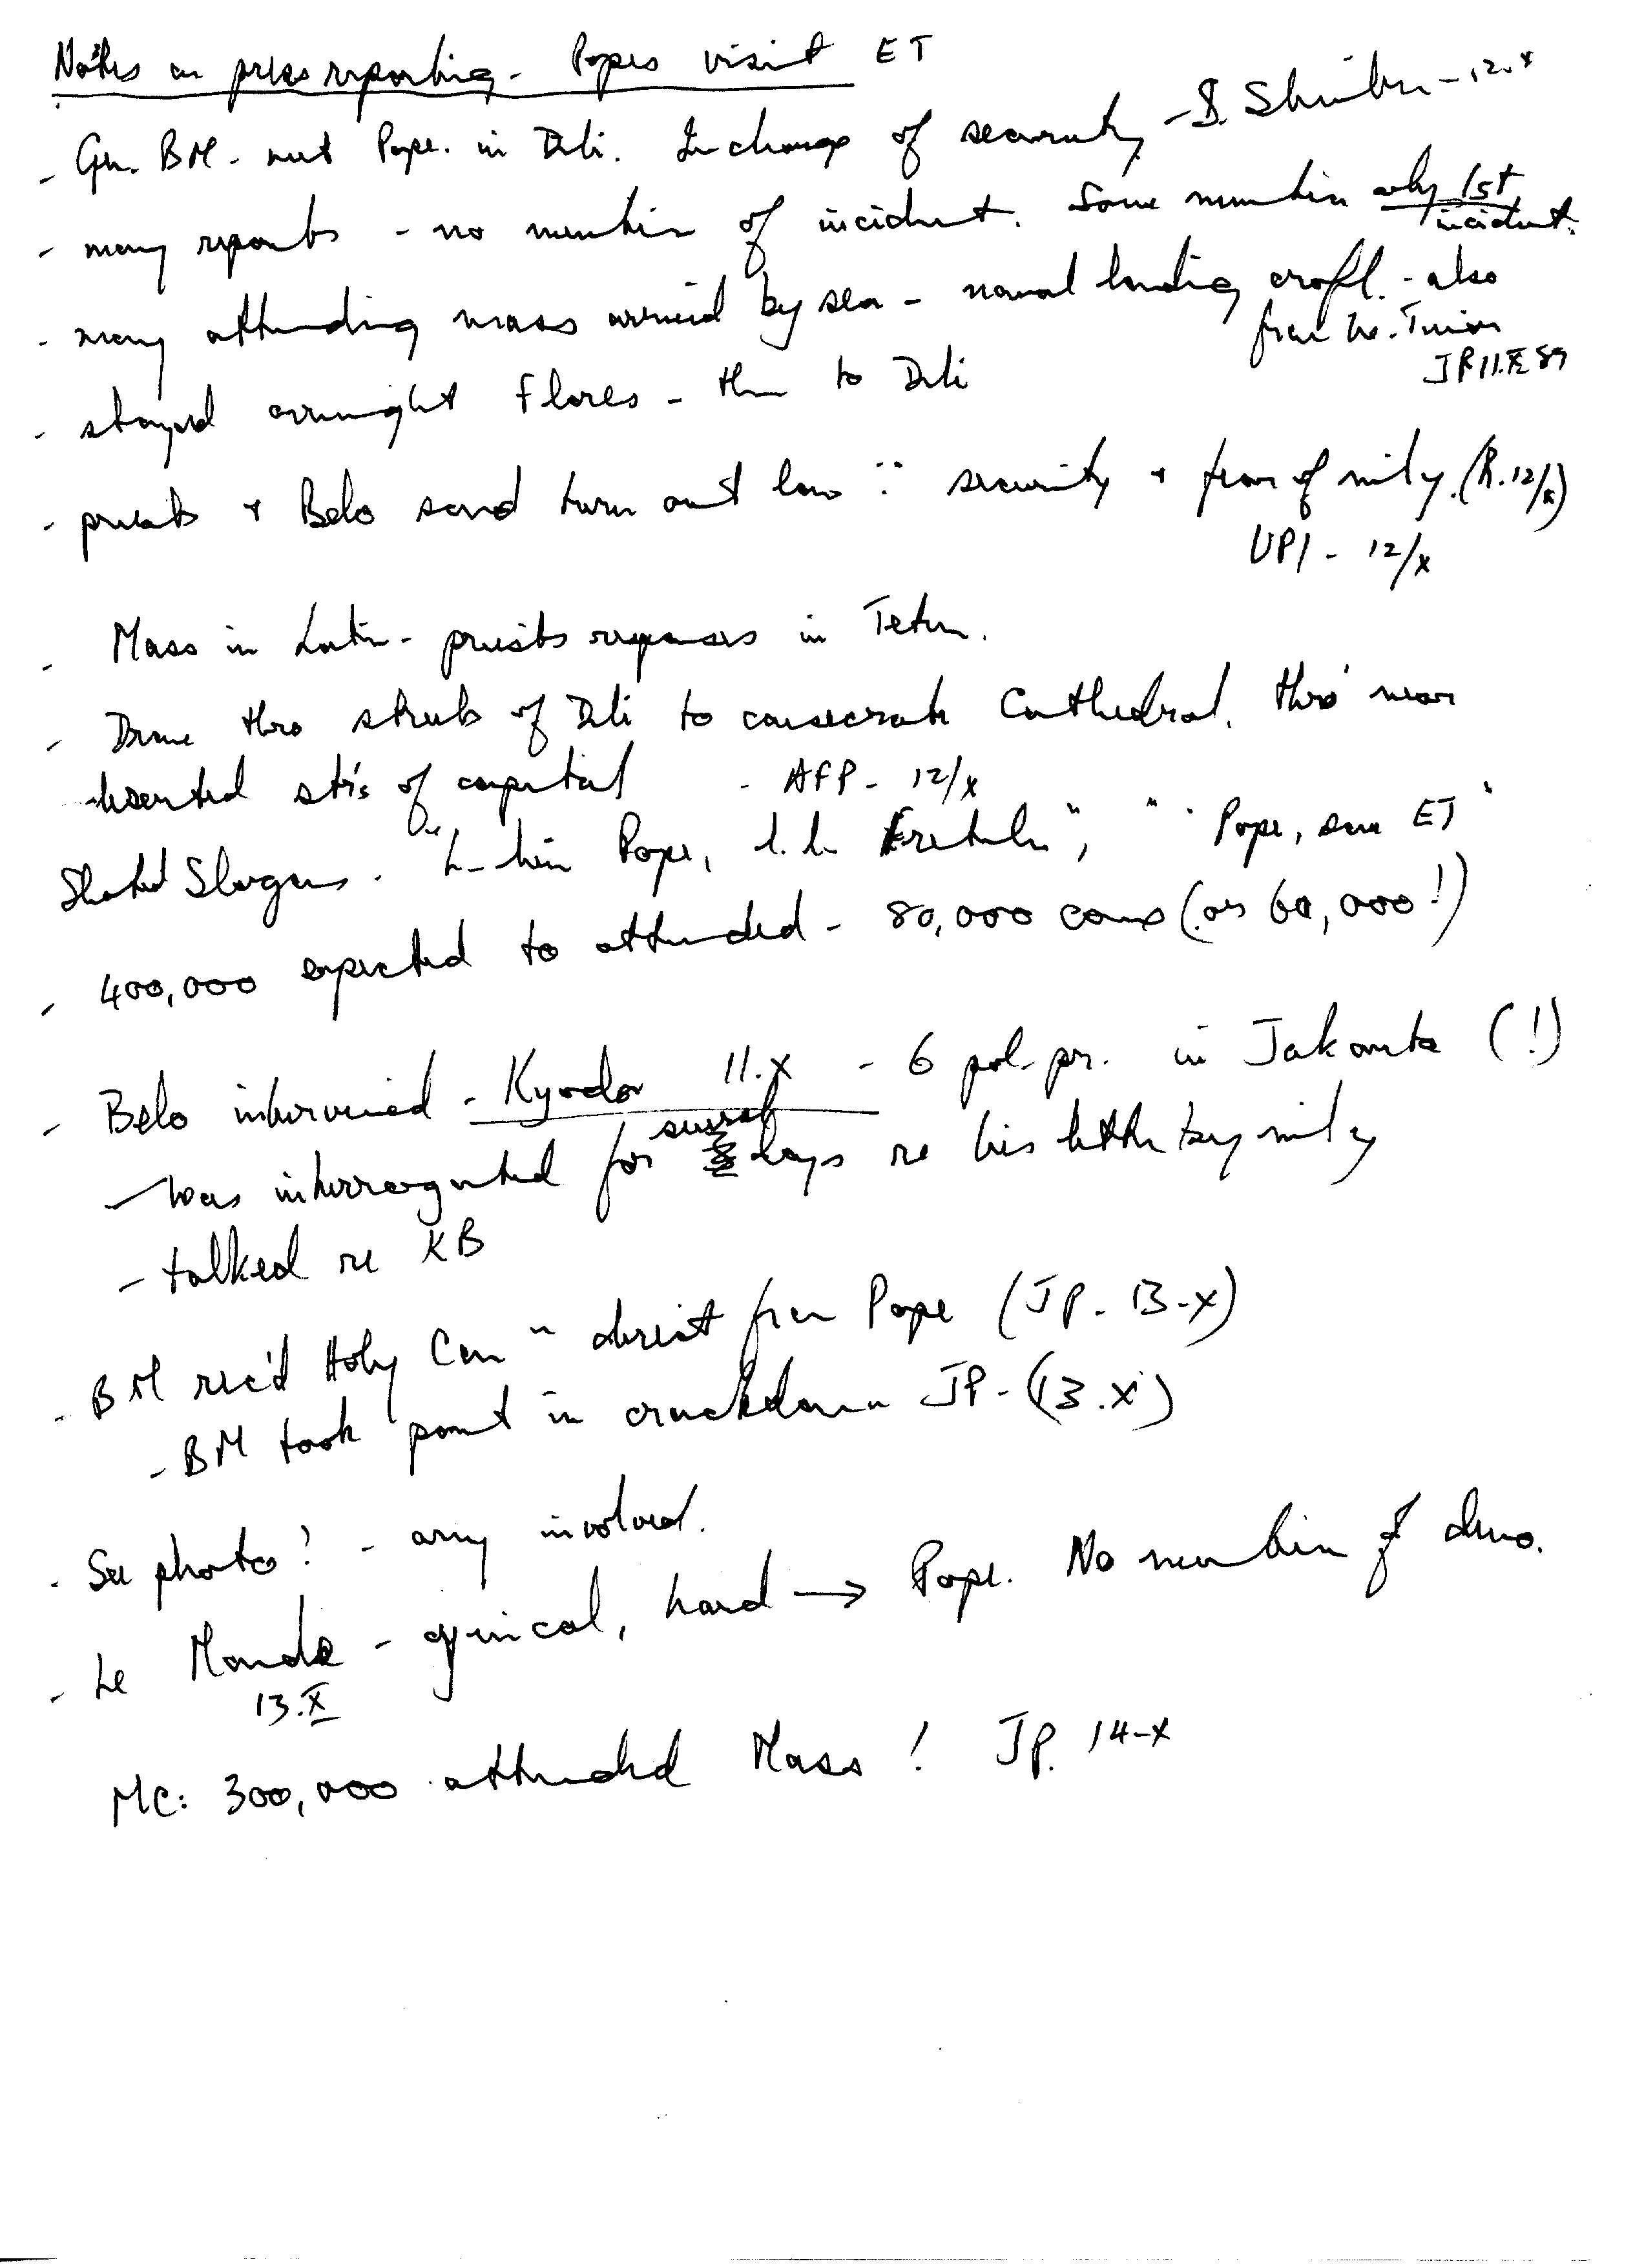 Notes on press reporting - Popes visit ET
- Gen. BM - met Pope. in Dili. In charge of security - S. - 12.x
- many reports - no mention of incident. Some mention only 1st
incident.
- many attending mass arrived by sea - naval landing craft. - also
from W. Timor
JP 11.X 89
- stayed overnight Flores - then to Dili
- priests + Belo said turn out low ∵ security + fear of mil'y. (R. 12/x)
UPI - 12/x
- Mass in Latin - priests responses in Tetun.
- Drove thro streets of Dili to consecrate Cathedral. thro' near
deserted str's of capital - AFP - 12/x
Shouted Slogans. Pope, Fretilin", " Pope, save ET"
- 400,000 expected to attended - 80,000 came (or 60,000!)
- Belo interviewed - Kyodo 11.x - 6 pol. pr. in Jakarta (!)
- was interrogated for several days re his letter by mil'y
- talked re KB
- BM rec'd Holy Com" direct from Pope (JP - 13-x)
- BM took part in crackdown JP - (13.x)
- See photo! - army involved.
- Le Monde - cynical, hard → Pope. No mention of demo.
13.X
MC: 300,000 attended Mass! JP. 14-x